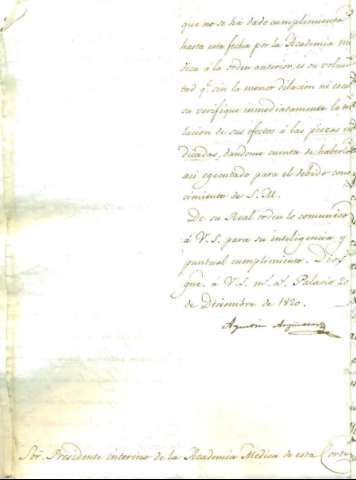 que no se ha dado cumplimiento
hasta esta fecha por la Academia me
dica á la orden anterior, es su volun
tad q.e sin la menor dilacion ni escu
sa verifique inmediatamente la
lacion de sus efectos á las piezas in
dicadas, dandome cuenta de haberlo
asi egecutado para el debido cono
cimiento de S. M.
De su Real orden lo comunico
á V. S. para su inteligencia y
puntual cumplimiento. Dios
gue. á V. S. m.s a.s Palacio 20
de Diciembre de 1820.
Agustin Argüelles
Sor. Presidente interino de la Academia Medica de esta Corte